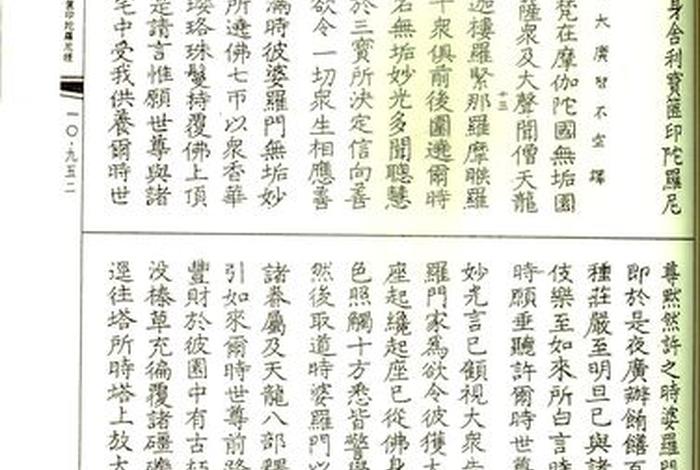 身舍利寶篋印陀羅尼
大廣智不空譯
梵在摩伽陀國無垢園
薩衆及大聲聞僧天龍
迦樓羅緊那羅摩睺羅
千衆俱前後圍遶爾時
名無垢妙光多聞聰慧
於三寶所決定信向善
欲令一切衆生相應善
滿時彼婆羅門無垢妙
所遶佛七帀以衆香華
瓔珞珠鬘持覆佛上頂
是請言惟願世尊與諸
宅中受我供養爾時世
尊默然許之時婆羅門
即於是夜廣辦餚饍百
種莊嚴至明旦已與諸
伎樂至如來所白言時
時願垂聽許爾時世尊
妙光言已顧視大衆告
羅門家爲欲令彼獲大
座起纔起座已從佛身
色照觸十方悉皆警覺
然後取道時婆羅門以
諸眷屬及天龍八部釋
引如來爾時世尊前路
豐財於彼園中有古朽
没榛草充徧覆諸礓礫
逕往塔所時塔上放大
印陀羅尼經
一〇·九五二